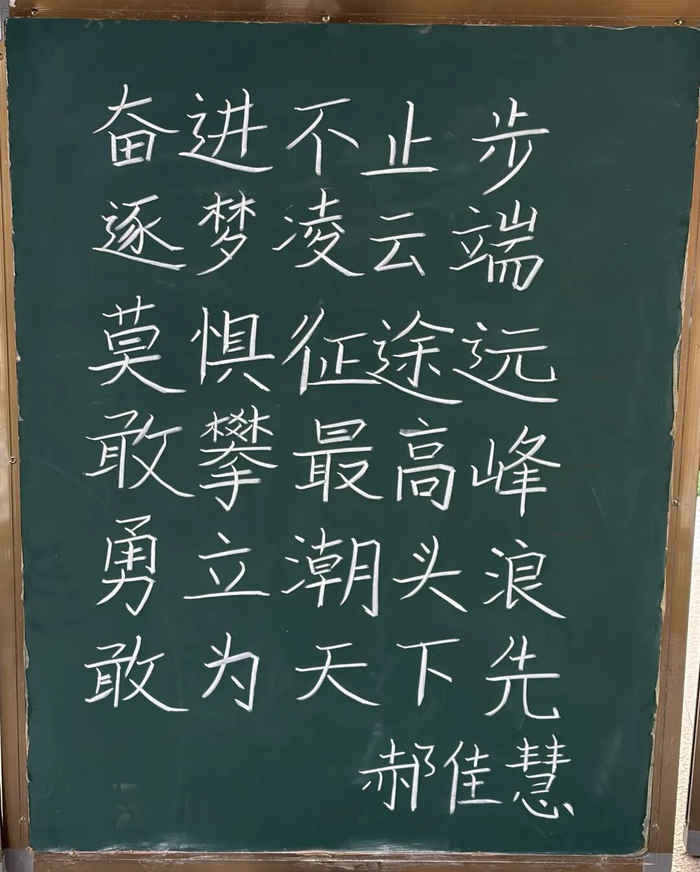 奋进不止步
逐梦凌云端
莫惧征途远
敢攀最高峰
勇立潮头浪
敢为天下先
郝佳慧